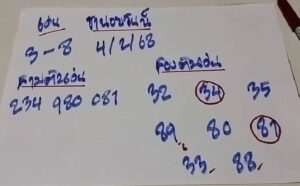 เด่น
3-8
4/2/68
สามตัวเด่น
234 980 081
สองตัวเด่น
32 34 35
89 80 81
33 88